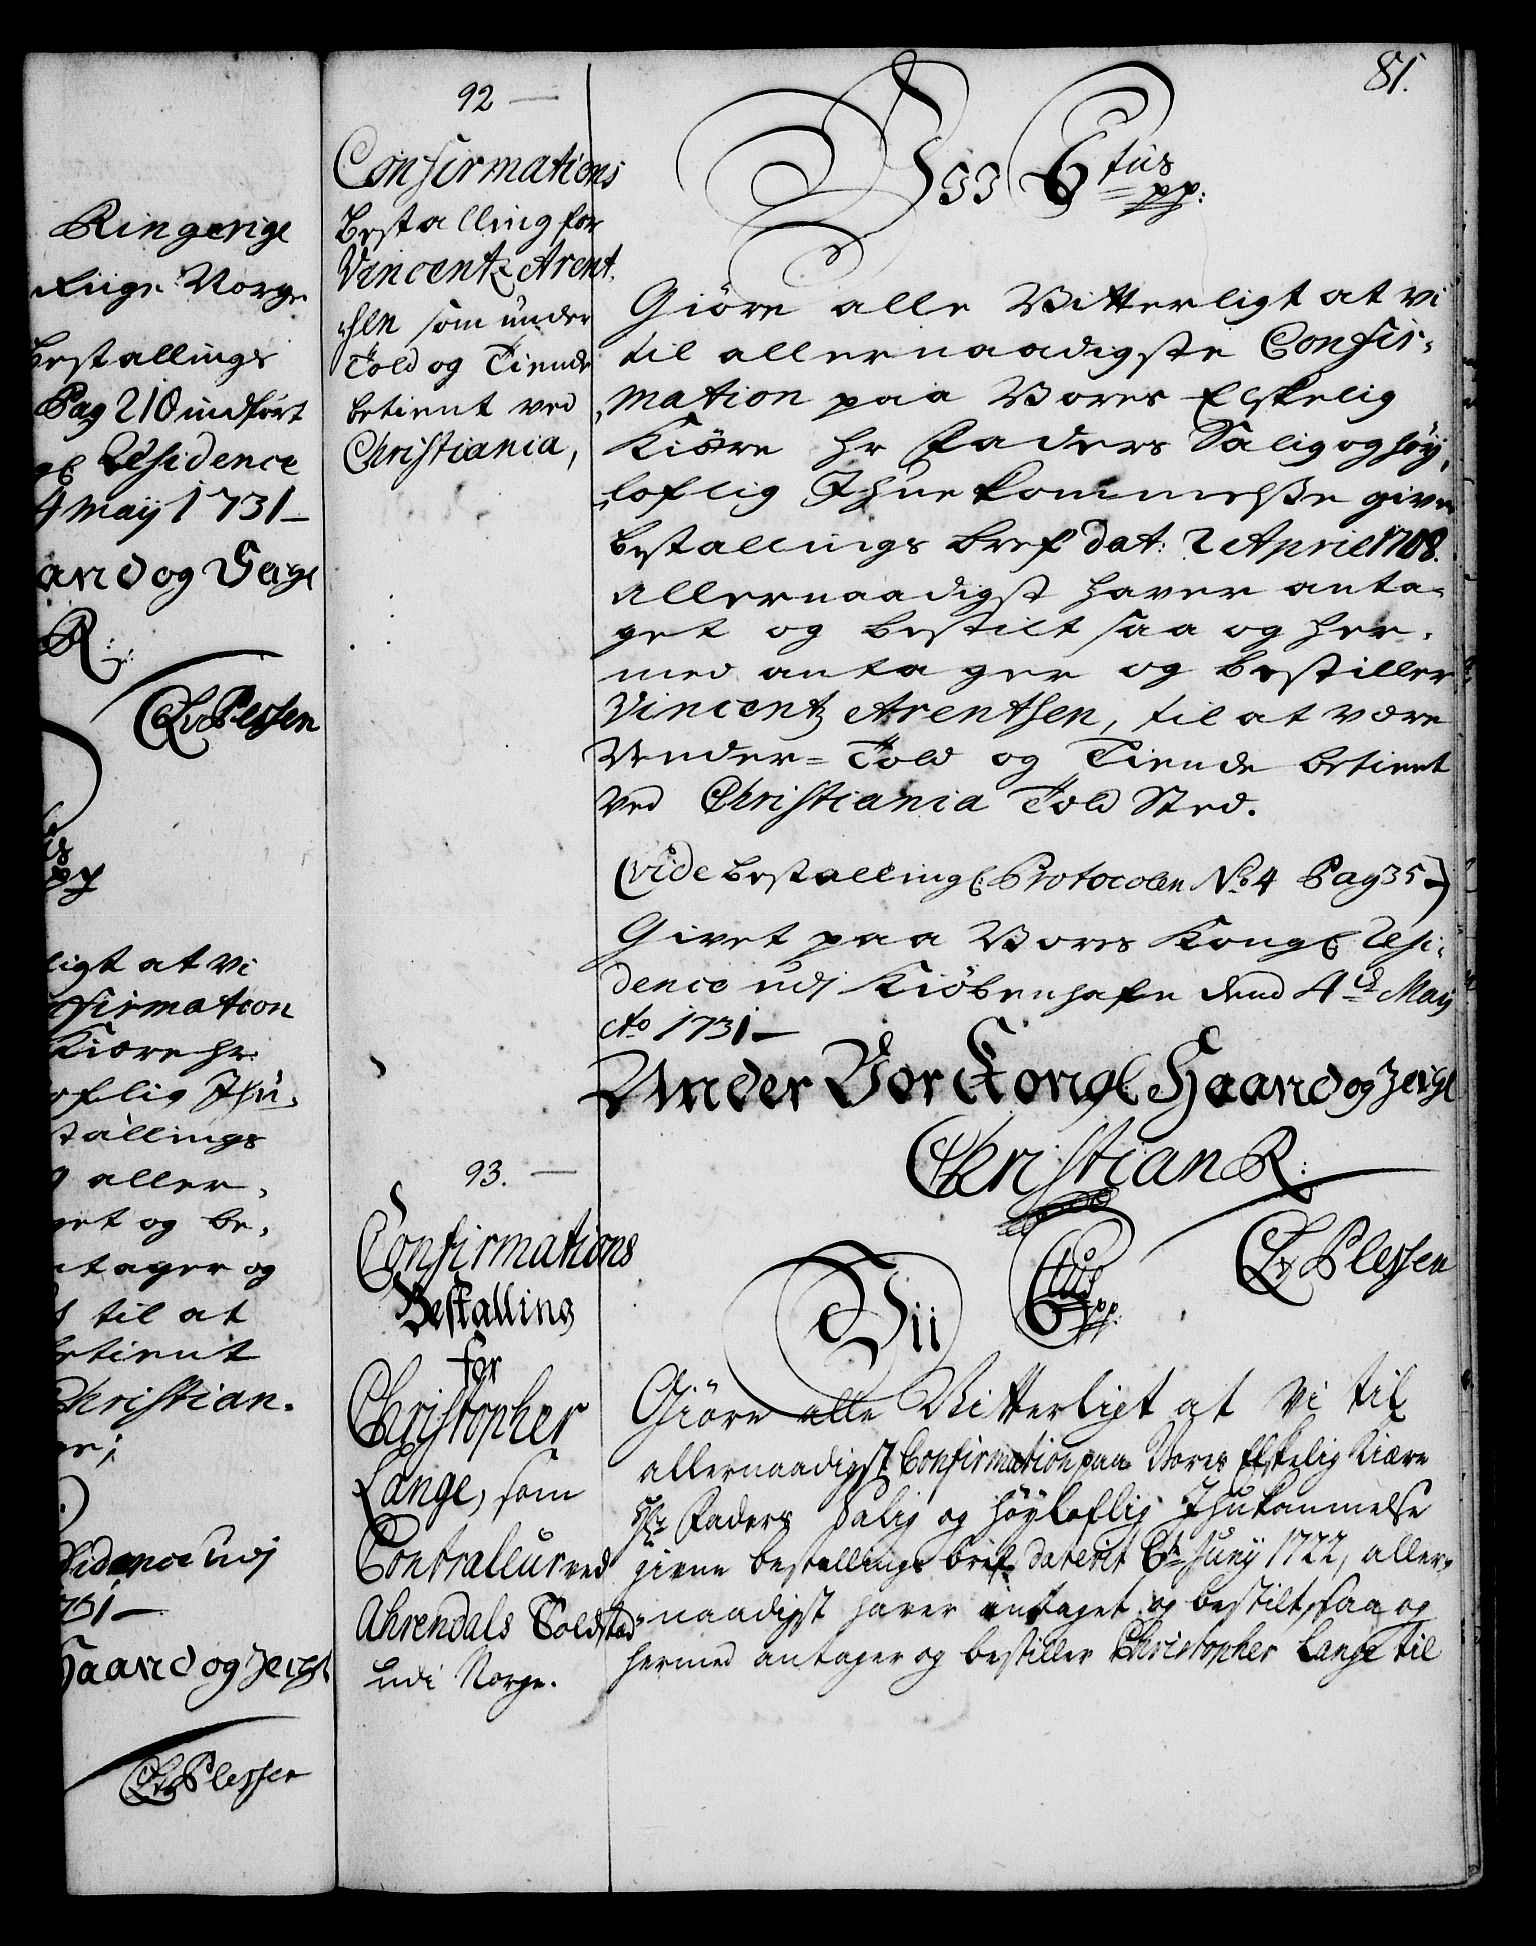 Ringerige
Norge
Bestallings
Pag 210 indført
Residence
4 Maij 1731 –
aand og Seigl
R:
CAvPlessen
ligt at vi
nfirmation
Kiære Hr:
oflig Ihu-
stallings
g aller-
get og be-
ntager og
til at
betient
Christian-
sidence udj
1731 –
Haand og Zeigl
CAvPlessen
81.
92 –
Confirmations
Bestalling for
Vincentz Arent-
sen som under
Told og Tiende
betient ved
Christiania,
Vii C6tus pp:
Giöre alle Vitterligt at vi
til allernaadigste Confir-
mation paa Vores Elskelig
Kiære Hr Faders Salig og höy-
loflig Ihuekommelsse given
bestallings bref dat: 2 April 1708.
allernaadigst haver anta-
get og bestilt saa og her-
med antager og bestiller
Vincentz Arentsen, til at være
Under-Told og Tiende betient
ved Christiania Told Sted.
(vide bestallings Protocolen No 4 Pag 35 –)
Givet paa Vores Kongl Resi-
dence udj Kiöbenhafn dend 4d Maij
Ao 1731 –
Under Vor Kongl Haand og Zeigl
Christian R:
CAvPlessen
93. –
Confirmations
Bestalling
for
Christopher
Lange, som
Contralleur ved
Ahrendals Toldsted
udi Norge.
Vii C6tus pp:
Giöre alle Vitterligt at vi til
allernaadigst Confirmation paa Vores Elskelig Kiære
Hr Faders Salig og höyloflig Ihukommelse
givne bestallings bref daterit 6t Juny 1722, aller-
naadigst haver antaget og bestilt, saa og
hermed antager og bestiller Christopher Lange til